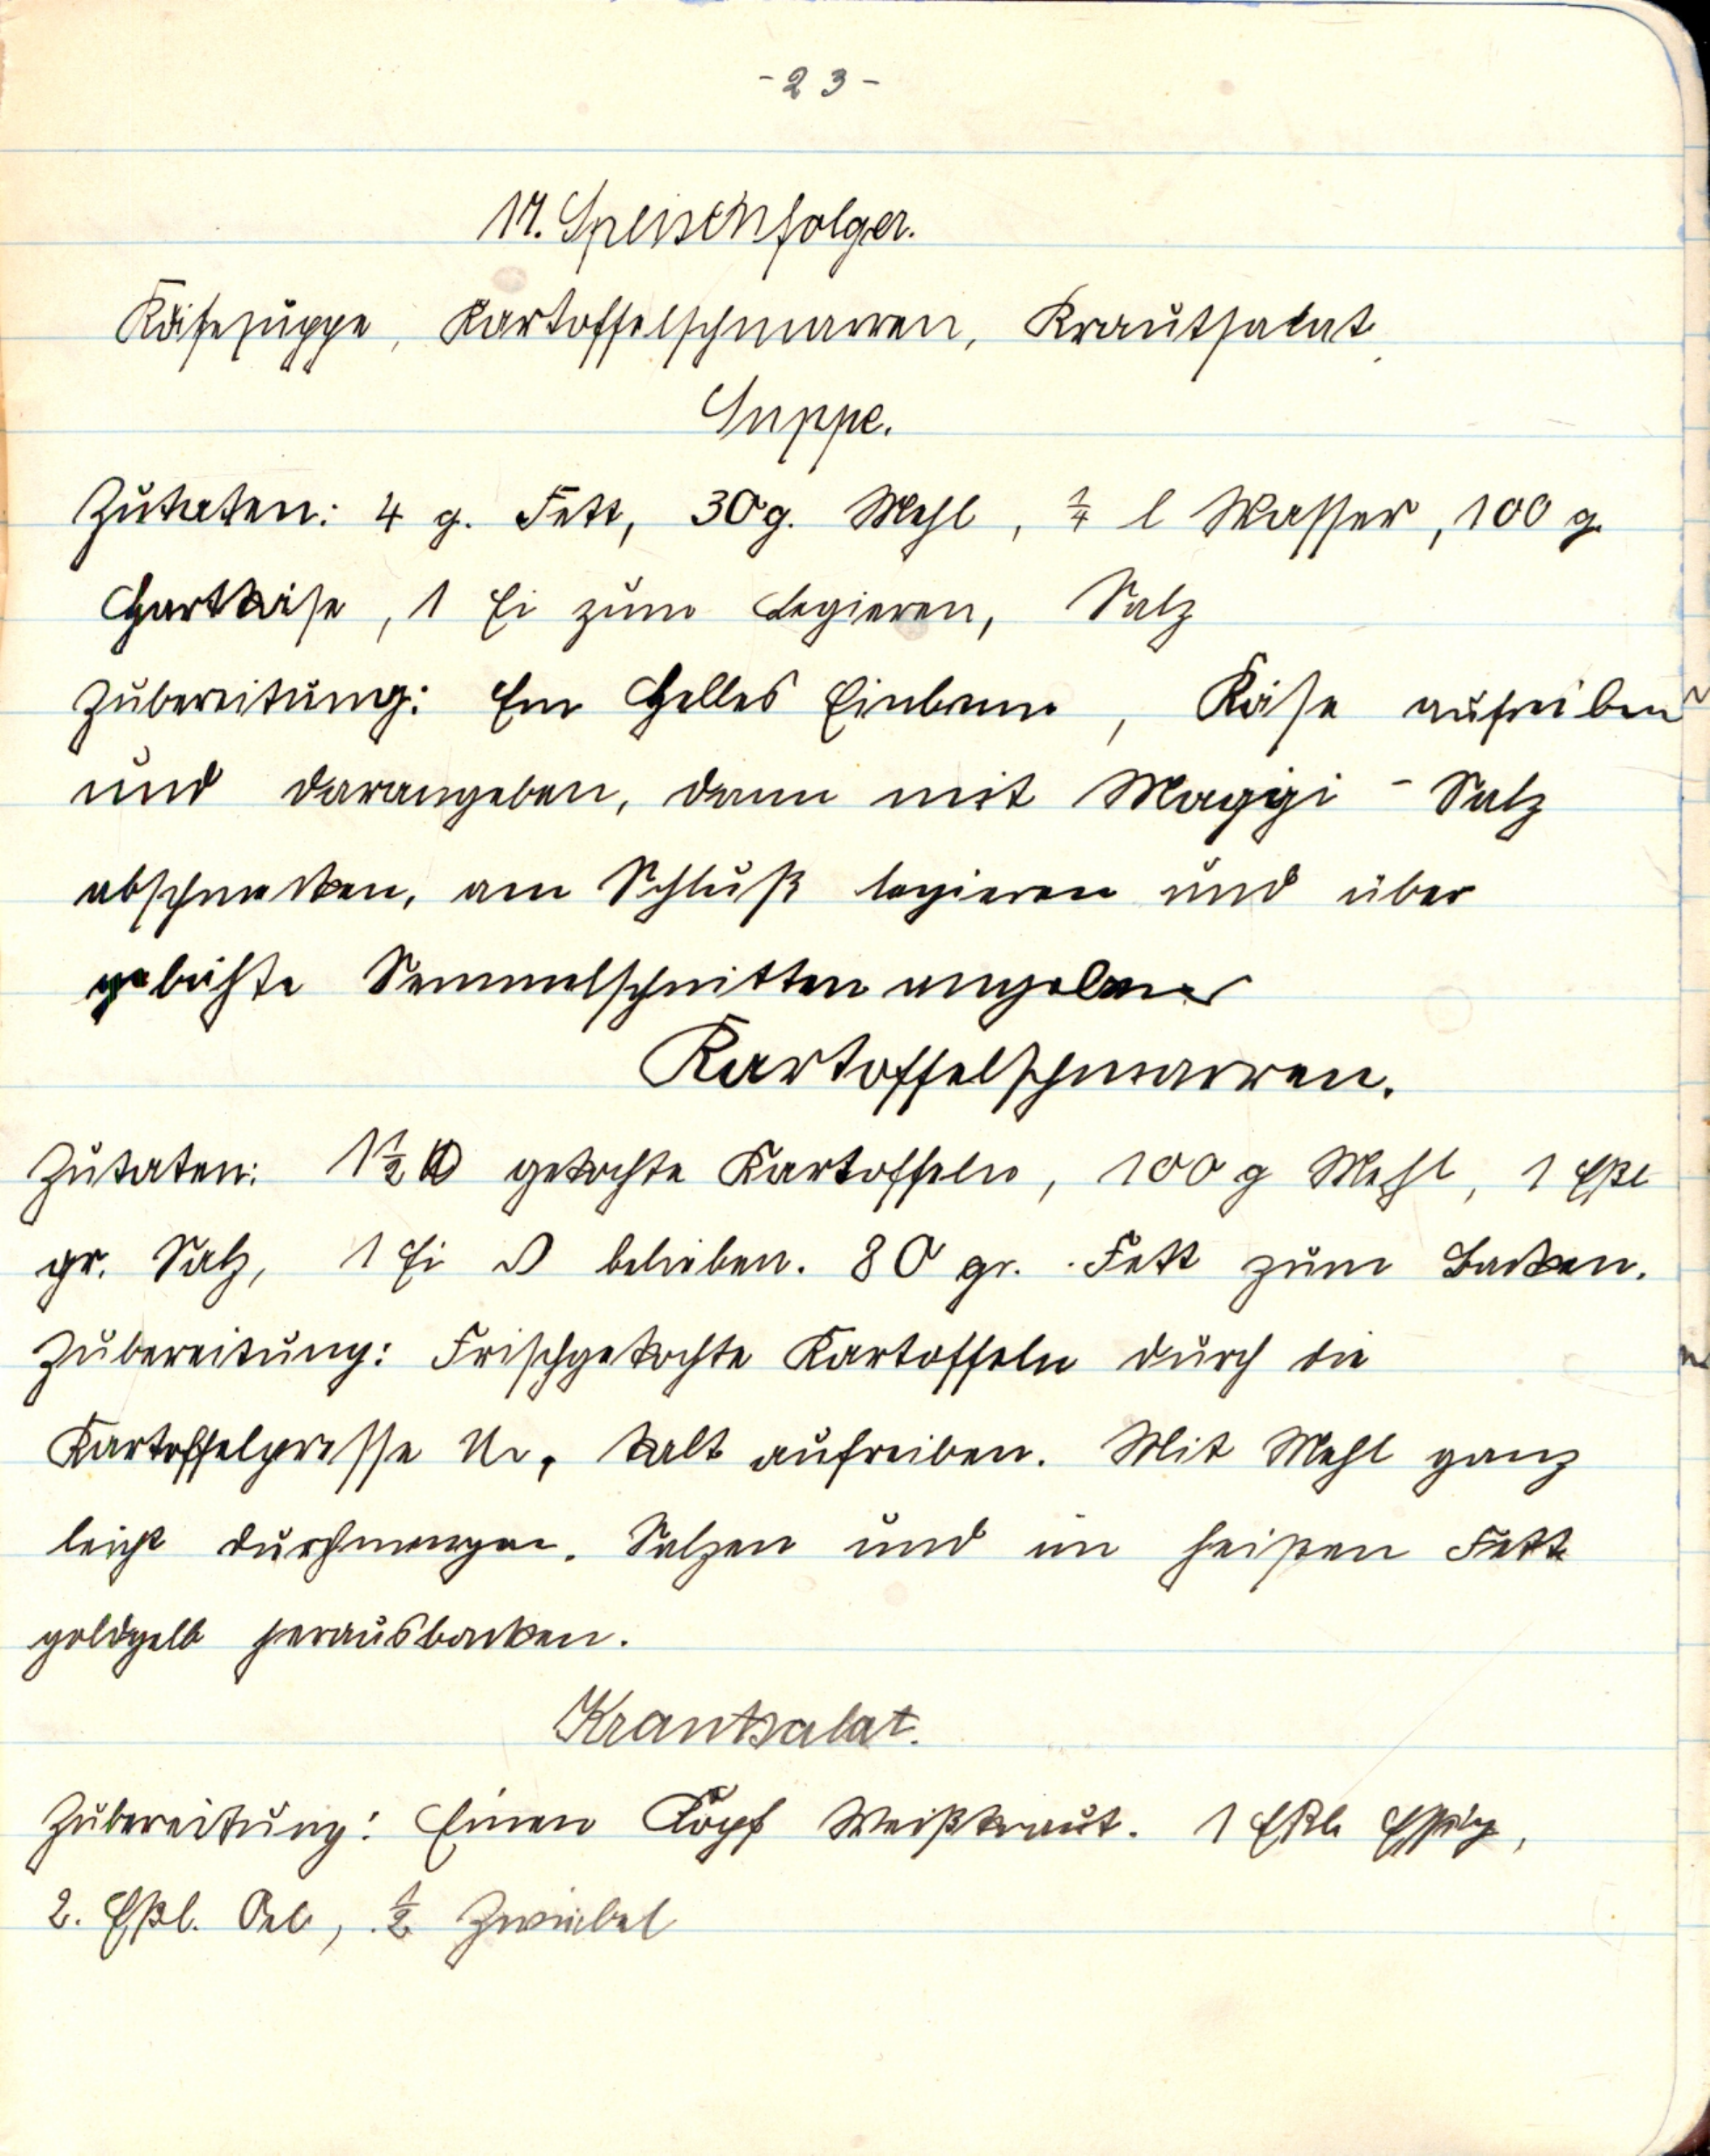 -23-
17. Speisenfolger.
Käsesuppe, Kartoffelschmarren, Krautsalat.
Suppe.
Zutaten: 4 g. Fett, 30 g. Mehl, ¼ l Wasser, 100 g.
Hartkäse, 1 Ei zum Legieren, Salz
Zubereitung: Ein Helles Einbrenn, Käse aufreiben
und darangeben, dann mit Maggi - Salz
abschmecken, am Schluß legieren und über
gebähte Semmelschnitten angeben
Kartoffelschmarren.
Zutaten: 1½ gekochte Kartoffeln, 100 g Mehl, 1 Eßl
gr. Salz, 1 Ei belieben. 80 gr. Fett zum Backen.
Zubereitung: Frischgekochte Kartoffeln durch die
Kartoffelpresse kalt aufreiben. Mit Mehl ganz
leicht durchmengen. Salzen und im heißen Fett
goldgelb herausbacken.
Krautsalat.
Zubereitung: Einen Kopf Weißkraut. 1 Eßl Essig,
2. Eßl. Oel, ½ Zwiebel